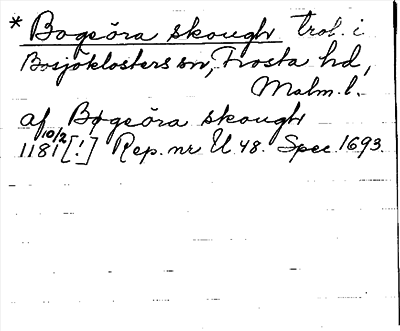 * Bogeöra skough trol. i
Bosjöklosters sn, Frosta hd,
Malm. l.
af Bogeöra skough
1181 10/2 [!] Rep. nr U 48. Spec. 1693.